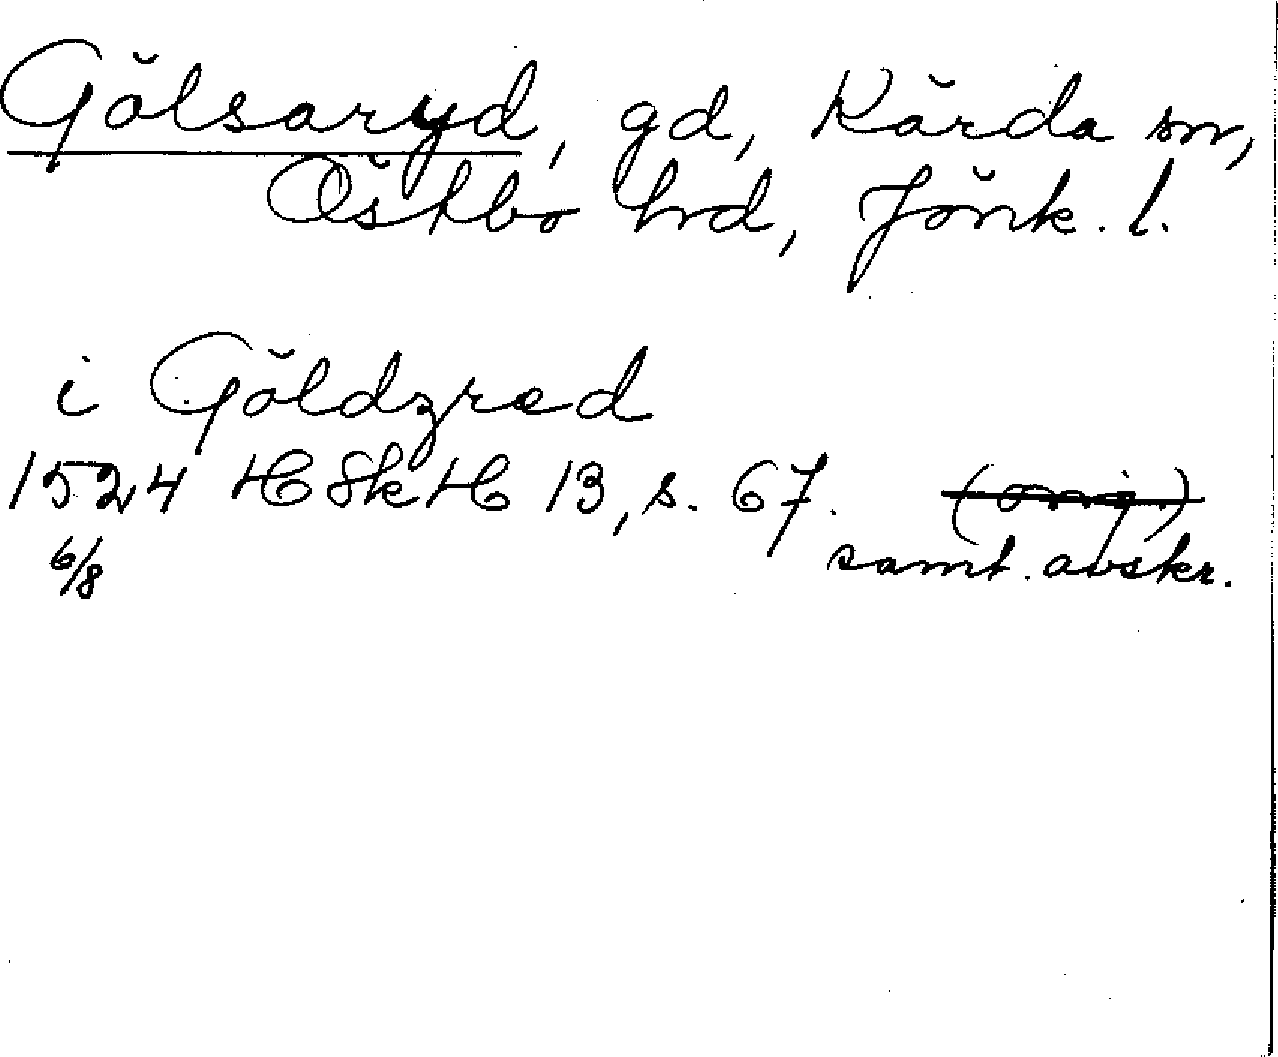 Gölsaryd, gd, Kärda sn,
Östbo hd, Jönk. l.
i Göldzred
1524 HSkH 13, s. 67. (orig.)
6/8 samt. avskr.